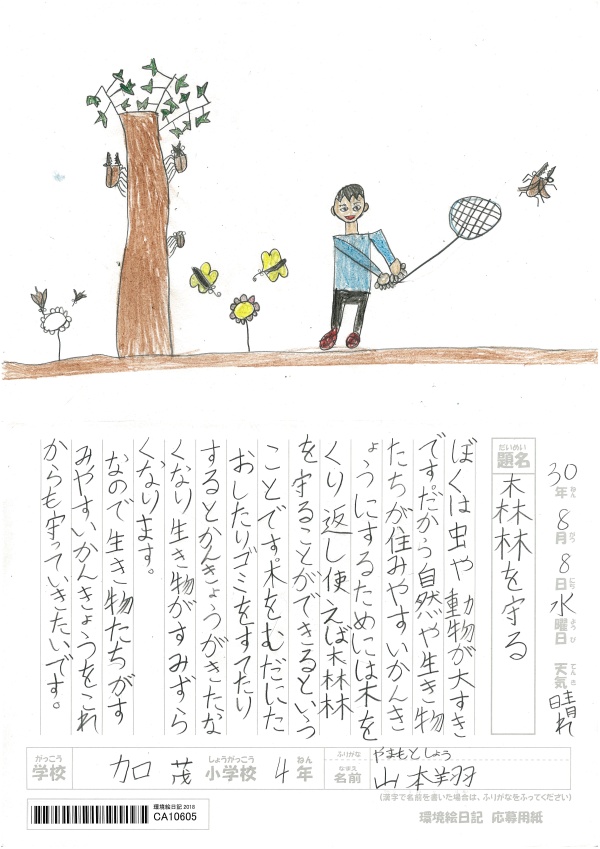 30年ねん8月がつ8日にち水曜日ようび 天気てんき晴れ
だいめい
題名
森林を守る
ぼくは虫や動物が大すき
です。だから自然や生き物
たちが住みやすいかんき
ょうにするためには木を
くり返し使えば森林
を守ることができるという
ことです。木をむだにた
おしたりゴミをすてたり
するとかんきょうがきたな
くなり生き物がすみずら
くなります。
なので生き物たちがす
みやすいかんきょうをこれ
からも守っていきたいです。
がっこう
学校
加茂
しょうがっこう
小学校
4
ねん
年
ふりがな
やまもとしょう
なまえ
名前
山本翔
(漢字で名前を書いた場合は、ふりがなをふってください)
環境絵日記 2018
CA10605
環境絵日記 応募用紙